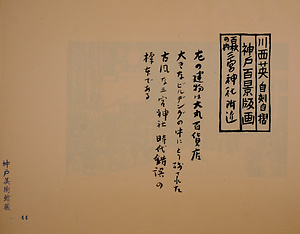 川西英 自刻自摺
神戸百景版画
百景の内 三宮神社附近
左の建物は大丸百貨店
大きなビルヂングの中にとり残された
古風な三宮神社 時代錯誤の
標本である
神戸美術館蔵
44